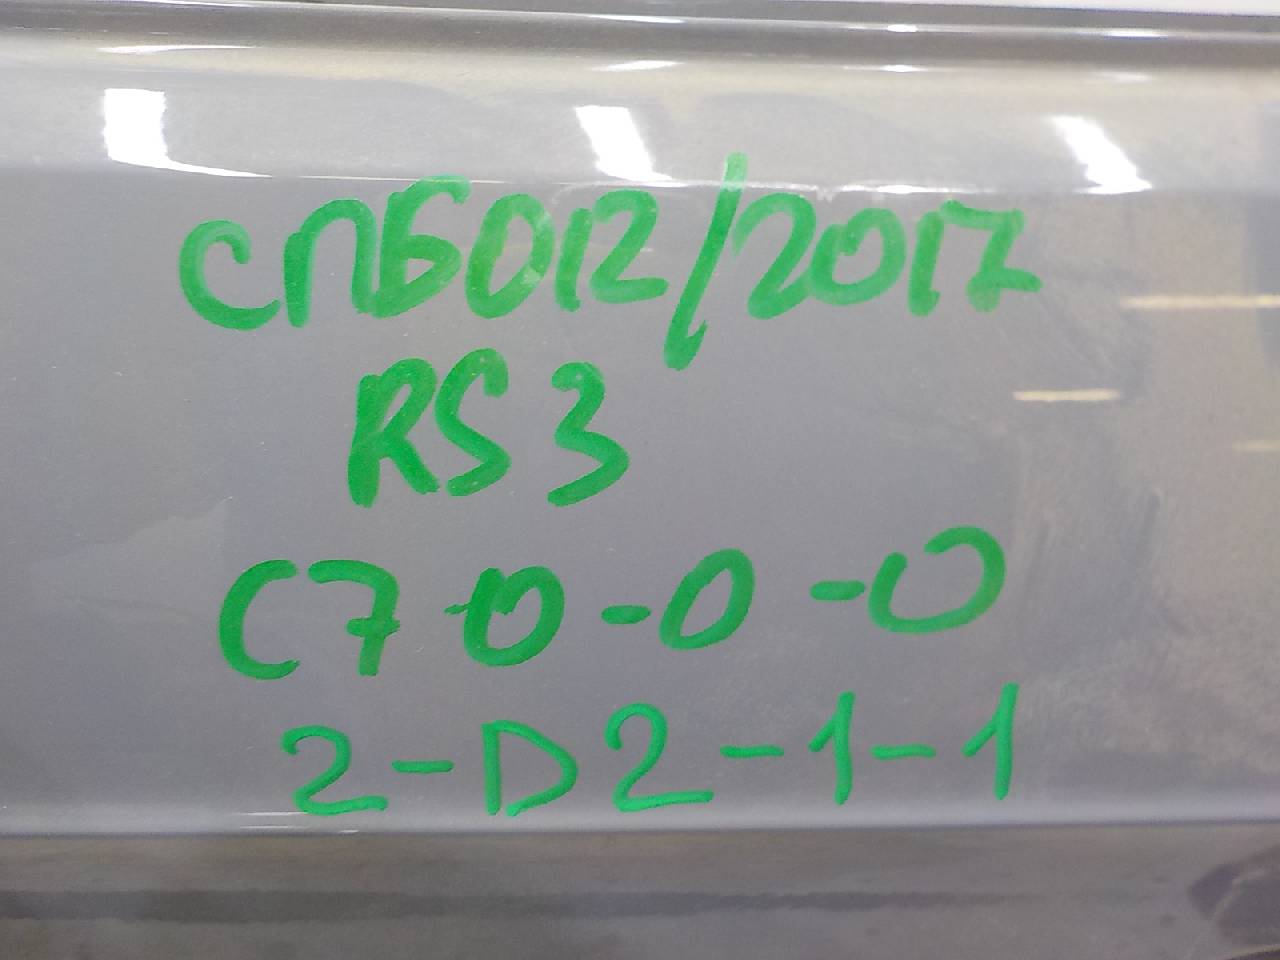 СПБ012/2017
RS3
C7-0-0-0
2-D2-1-1